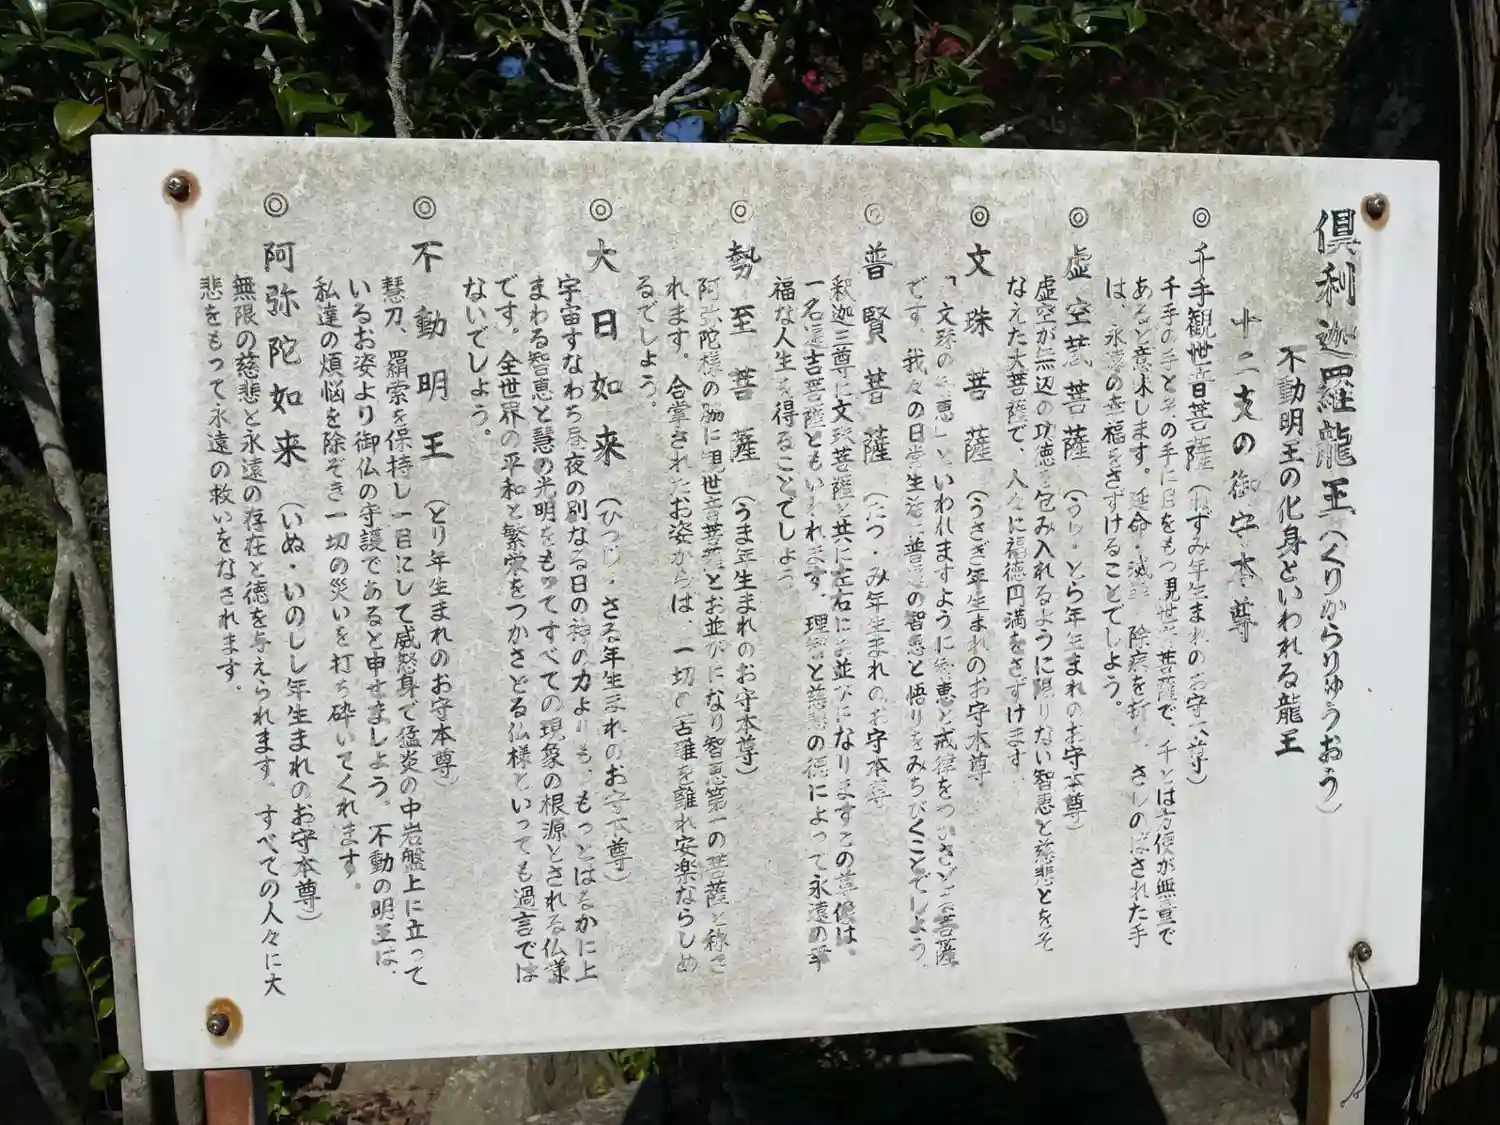 倶利迦羅龍王（くりからりゅうおう）
不動明王の化身といわれる龍王
十二支の御守本尊
◎千手観世音菩薩（ねずみ年生まれのお守本尊）
千手の手とその手に目をもつ観世音菩薩で、千とは方便が無量で
あると意味します。延命・滅罪・除病を祈り、さしのばされた手
は、永遠の幸福をさずけることでしよう。
◎虚空蔵菩薩（うし・とら年生まれのお守本尊）
虚空が無辺の功徳を包み入れるように限りない智恵と慈悲とをそ
なえた大菩薩で、人々に福徳円満をさずけます
◎文珠菩薩（うさぎ年生まれのお守本尊
「文珠の恵」といわれますように恵と戒律をつかさどる菩薩
です。我々の日常生活に普遍の智恵と悟りをみちびくことでしよう。
◎普賢菩薩（たつ・み年生まれのお守本尊
釈迦三尊に文珠菩薩と共に左右にお並びになりますこの菩薩は、
一名遍吉菩薩ともいわれます。理智と慈悲の徳によって永遠の幸
福な人生を得ることでしよう
◎勢至菩薩（うま年生まれのお守本尊）
阿弥陀様の脇に観世音菩薩とお並びになり智恵第一の菩薩と称さ
れます。合掌されたお姿からは、一切の苦難を離れ安楽ならしめ
るでしよう。
◎大日如来（ひつじ・さる年生まれのお守本尊）
宇宙すなわち昼夜の別なる日の神の力よりも、もっとはるかに上
まわる智恵と慧の光明をもってすべての現象の根源とされる仏様
です。全世界の平和と繁栄をつかさどる仏様といっても過言では
ないでしよう。
◎不動明王（とり年生まれのお守本尊）
慧刀、羂索を保持し一目にして威怒身で猛炎の中岩盤上に立って
いるお姿より御仏の守護であると申せましよう。不動の明王は、
私達の煩悩を除ぞき一切の災いを打ち砕いてくれます。
◎阿弥陀如来（いぬ・いのしし年生まれのお守本尊）
無限の慈悲と永遠の存在と徳を与えられます。すべての人々に大
悲をもって永遠の救いをなされます。